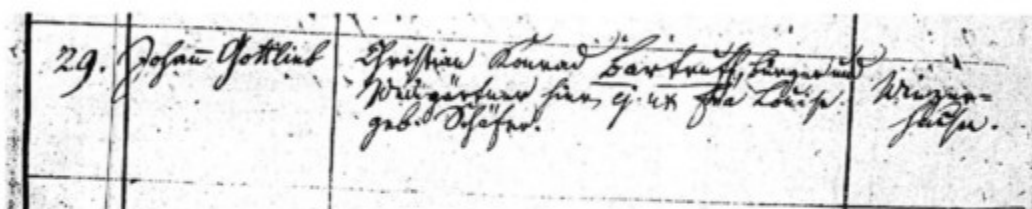 29. Johann Gottlieb
Christian Konrad Bartruff, Bürger und
Weingärtner hier, ej. ux Fra Louise
geb. Schäfer.
Winzer=
hausen.